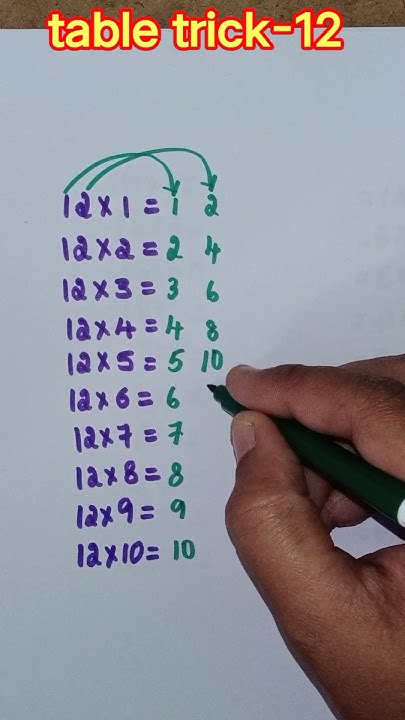 table trick-12
12×1=1 2
12×2=2 4
12×3=3 6
12×4=4 8
12×5=5 10
12×6=6
12×7=7
12×8=8
12×9=9
12×10=10